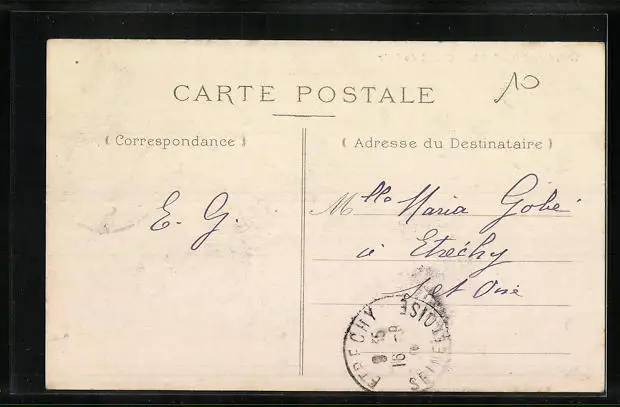 10
CARTE POSTALE
( Correspondance )
( Adresse du Destinataire )
E. G.
Mlle Maria Gobé
à Etréchy
S et Oise
ETRECHY
SEINE ET OISE
16 -9